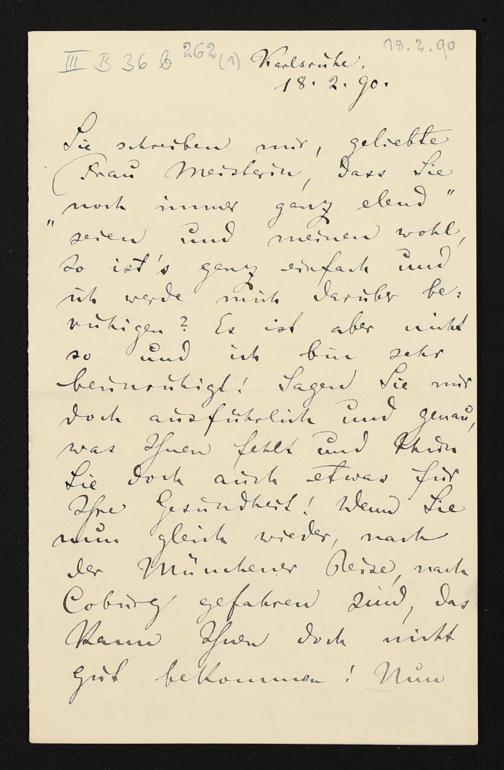 III B 36 b 262 (1)
18.2.90
Karlsruhe.
18. 2. 90.
Sie schreiben mir, geliebte
Frau Meisterin, dass Sie
noch immer „ganz elend"
seien und meinen wohl,
so ist's ganz einfach und
ich werde mich darüber be:
ruhigen? Es ist aber nicht
so und ich bin sehr
beunruhigt! Sagen Sie mir
doch ausführlich und genau,
was Ihnen fehlt und thun
Sie doch auch etwas für
Ihre Gesundheit! Wenn Sie
nun gleich wieder, nach
der Münchener Reise, nach
Coburg gefahren sind, das
kann Ihnen doch nicht
gut bekommen! Nun